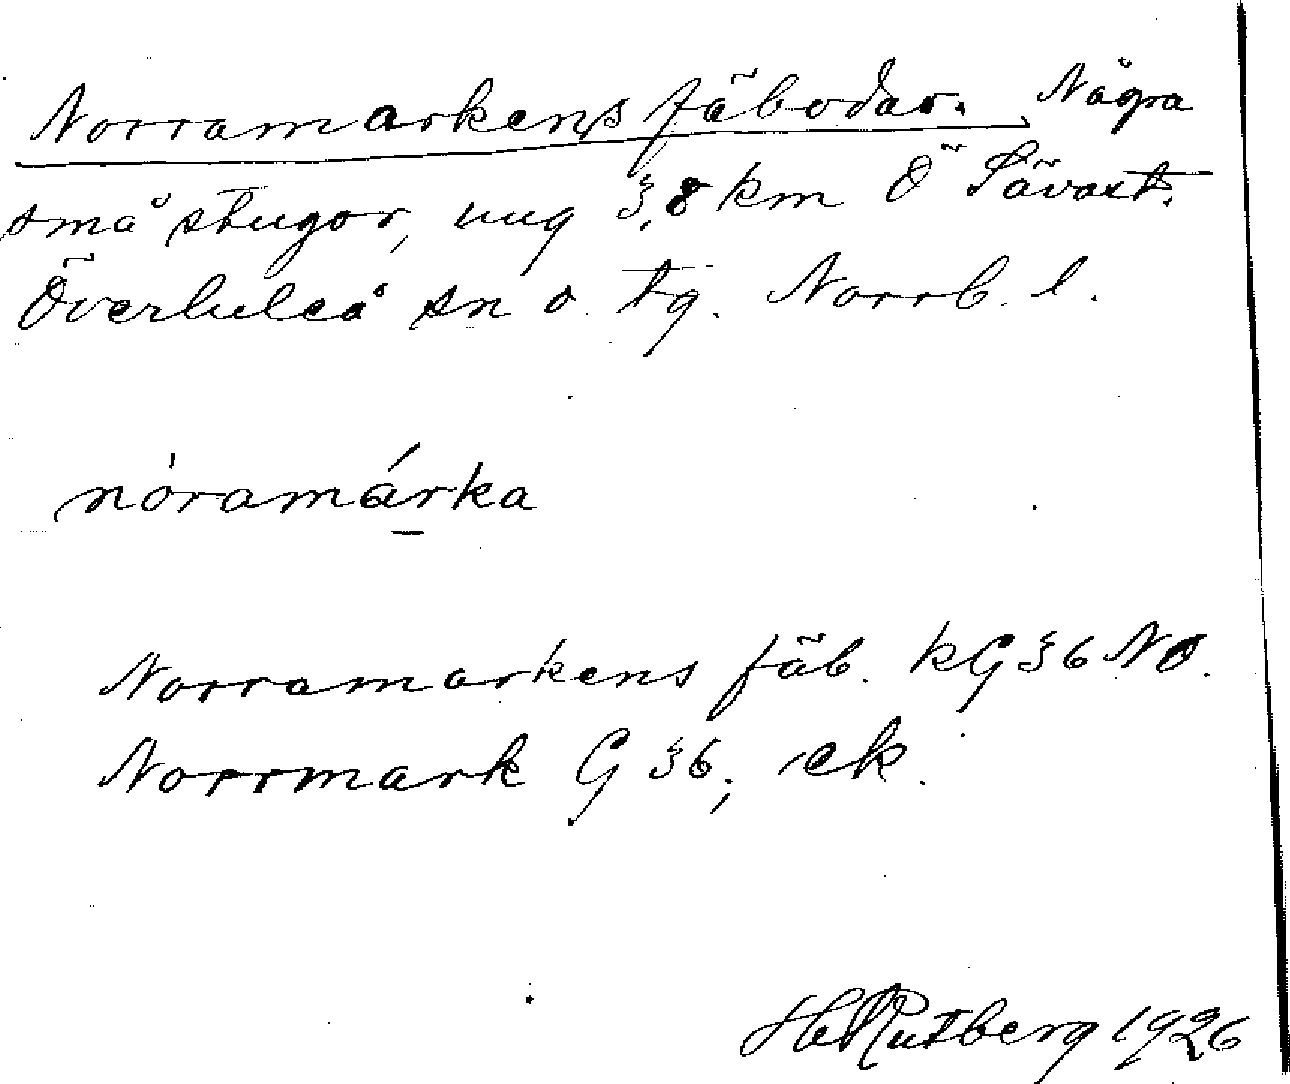 Norramarkens fäbodar. Några
små stugor, ung 3,8 km Ö Sävast.
Överluleå sn o. tg. Norrb. l.
nòramárka
Norramarkens fäb. kG 36 NO.
Norrmark G 36, ek.
H Rutberg 1926